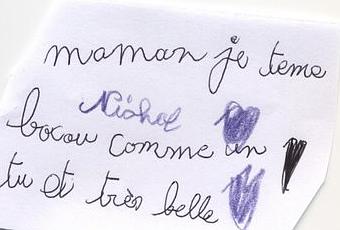 maman je teme
Nishol
bocou comme un
tu et très belle